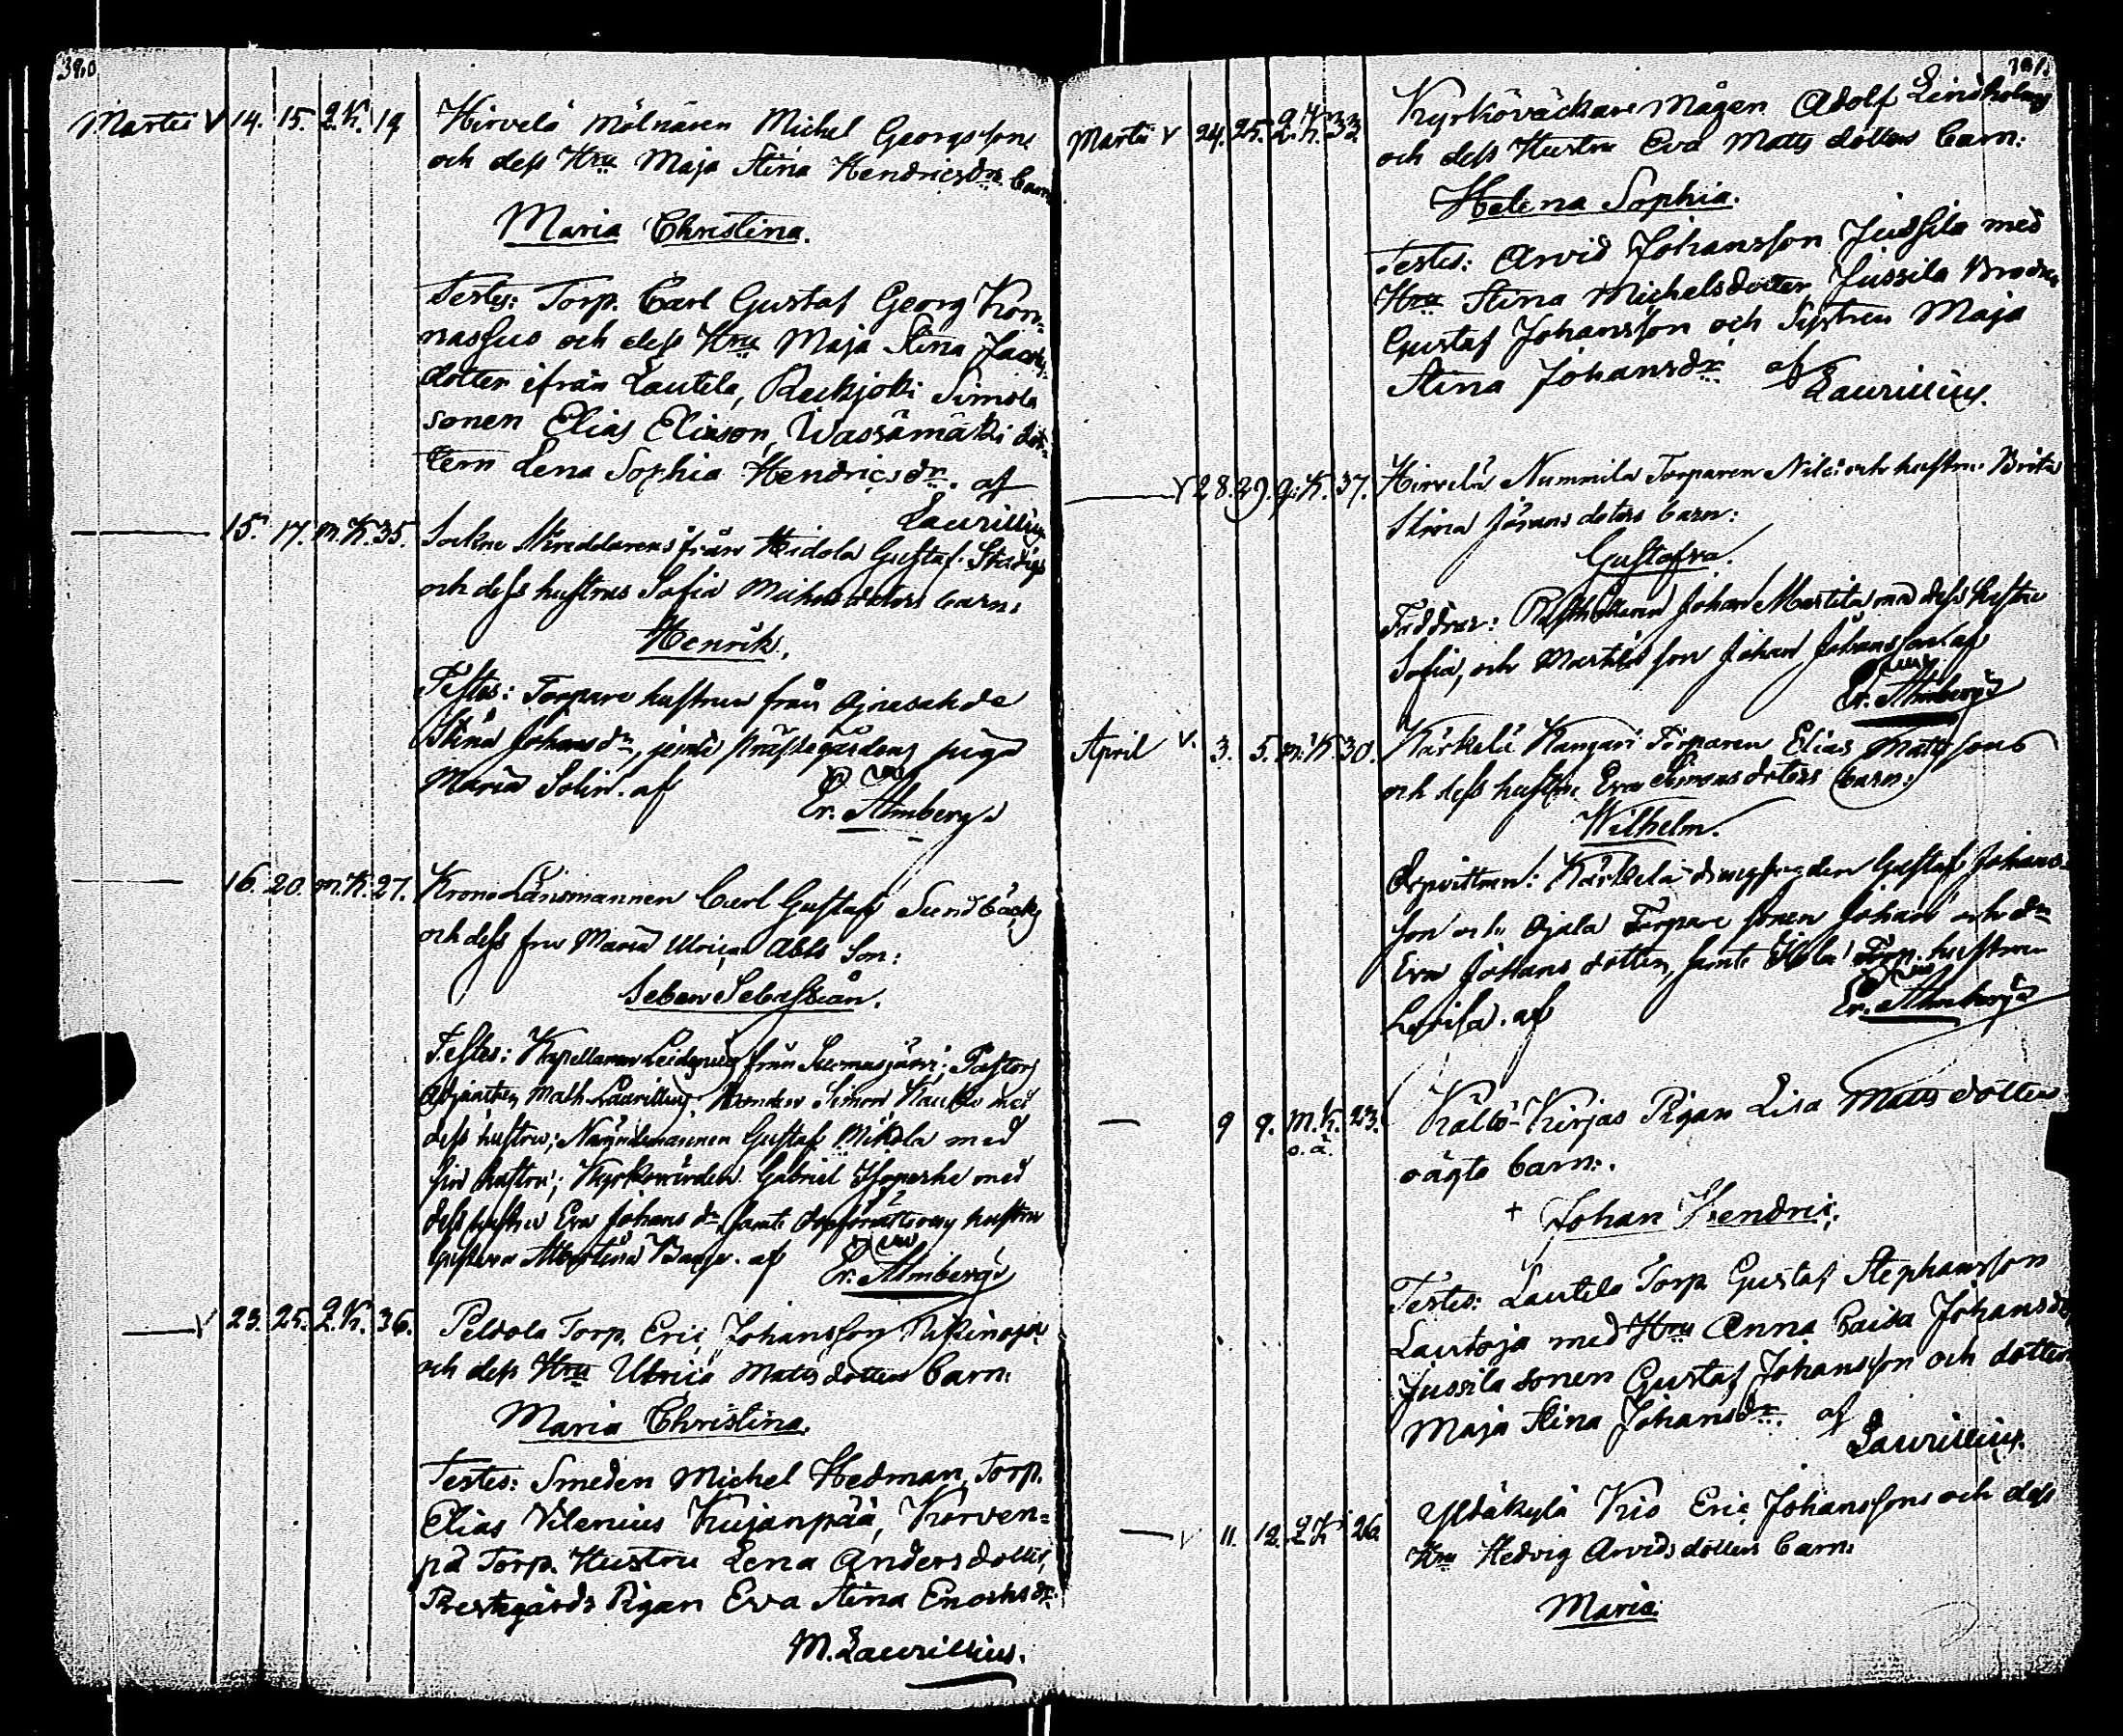 390
Martii V 14. 15. Q.K. 19 Hirvelä Mölnären Michel Georgssons
och dess Hru Maja Stina Hendricsdrs barn
Maria Christina.
Testes: Torp. Carl Gustaf Georg Kon-
nassius och dess Hru Maja Stina Jacobs-
dotter ifrån Lautela, Reckjoki Simola
sonen Elias Eliason, Wassämäki dot-
tern Lena Sophia Hendricsdr. af
Laurillius
15. 17. m.K. 35. Sockne Skreddarens från Heidola Gustaf
och dess hustrus Sofia Michelsdotters barn:
Henrik.
Testes: Torpare hustrun från
Stina Johansdr, jemte prästegårdens piga
Maria Solin. af
Er. Almberg
16. 20. m.K. 27. Krono Länsmannen Carl Gustaf Sundbäcks
och dess fru Maria Ulricas Abbts Son:
Seben Sebastian.
Testes: Kapellanen från Suomusjärvi; Pastors
Adjuncten Math. Laurillius, Simon med
dess hustru; Nämndemannen Gustaf Mikola med
sin hustru; Kyrkovärden Gabriel med
dess hustru Eva Johansdr samt hustru
Albertina af Er. Almberg
V 23. 25. Q.K. 36. Peldola Torp. Eric Johansson
och dess Hru Ulrica Mattsdotters barn:
Maria Christina.
Testes: Smeden Michel Hedman, Torp.
Elias Vilenius Kujanpää, Korven-
pä Torp. Hustru Lena Andersdotter,
Prestegårds Pigan Eva Stina Enochsdr.
M. Laurillius.
391.
Martii V 24. 25. Q.K. 33 Kyrkoväckare Mågen Adolf Lindholms
och dess Hustru Eva Matts dotters barn:
Helena Sophia.
Testes: Arvid Johansson Jussila med
Hru Stina Michelsdotter, Jussila Brodren
Gustaf Johansson och Systren Maja
Stina Johansdr. af
Laurillius.
V 28. 29. q.K. 37. Hirvelä Nummila Torparen Nils och hustru Brita
Stina Jörans doters barn:
Gustafva.
Faddrar: Johan Martila med dess hustru
Sofia, och Martila son Johan Johansson af
Er. Almberg
April V. 3. 5. m.K. 30. Kärkelä Kangari Torparen Elias Mattssons
och dess hustru Eva Simonsdoters barn:
Wilhelm.
Dopvittnen: Kärkelä Gustaf Johans-
son och Ojala Torpare sonen Johan och dr
Eva Johans dotter, samt Torp. hustrun
Lovisa. af Er. Almberg
9 9. m.K. 23. Kältö-Kirjas Pigan Lisa Matts dotters
o.ä.
oägte barn:
+ Johan Hendric.
Testes: Lautela Torp. Gustaf Stephansson
Lautoja med Hru Anna Caisa Johansdr
Jussila sonen Gustaf Johansson och dotter
Maja Stina Johansdr. af
Laurillius.
V 11. 12. Q K 26. Yldäkylä Kio Eric Johanssons och dess
Hru Hedvig Arvidsdotters barn:
Maria.